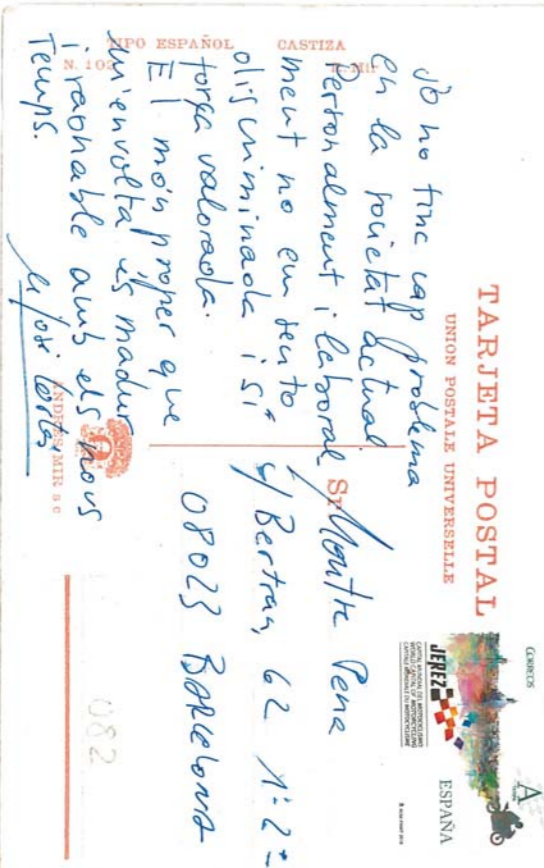 TARJETA POSTAL
UNION POSTALE UNIVERSELLE
CORREOS
A
ESPAÑA
JEREZ
CAPITAL MUNDIAL DEL MOTOCICLISMO
WORLD CAPITAL OF MOTORCYCLING
CAPITALE MONDIALE DU MOTOCYCLISME
TIPO ESPAÑOL CASTIZA
N. 102
Jo no tinc cap problema
en la societat actual
Personalment i laboral
ment no em sento
discriminada i sí
força valorada.
El món proper que
m'envolta és madur
i raonable amb els nous
Temps.
Sr
Montse Pena
c/ Bertran, 62 1º 2ª
08023 BARCELONA
ANDRES MIR
082